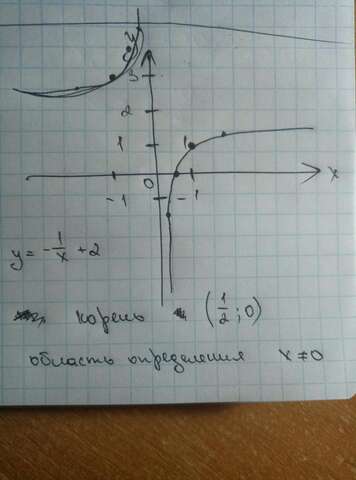 y
3
2
1 1
0 x
-1 -1
y = -1/x + 2
корень (1/2; 0)
область определения x ≠ 0